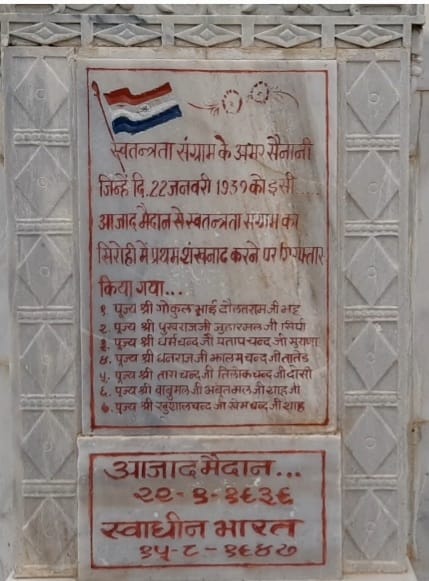 स्वतन्त्रता संग्राम के अमर सैनानी
जिन्हें दि. 22 जनवरी 1939 को इसी
आजाद मैदान से स्वतन्त्रता संग्राम का
सिरोही में प्रथम शंखनाद करने पर गिरफ्तार
किया गया...
१. पूज्य श्री गोकुल भाई दौलतरामजी भट्ट
२. पूज्य श्री पुखराजजी जुहारमलजी सिंघी
३. पूज्य श्री धर्मचन्द जी प्रतापचन्द जी सुराणा
४. पूज्य श्री धनराजजी झालमचन्द जी तातेड
५. पूज्य श्री ताराचन्द जी तिलोकचन्द जी दोसी
६. पूज्य श्री बाबुमलजी अचलमलजी शाहजी
७. पूज्य श्री खुशालचन्द जी खेमचन्द जी शाह
आजाद मैदान...
२२-१-१९३९
स्वाधीन भारत
१५-८-१९४७